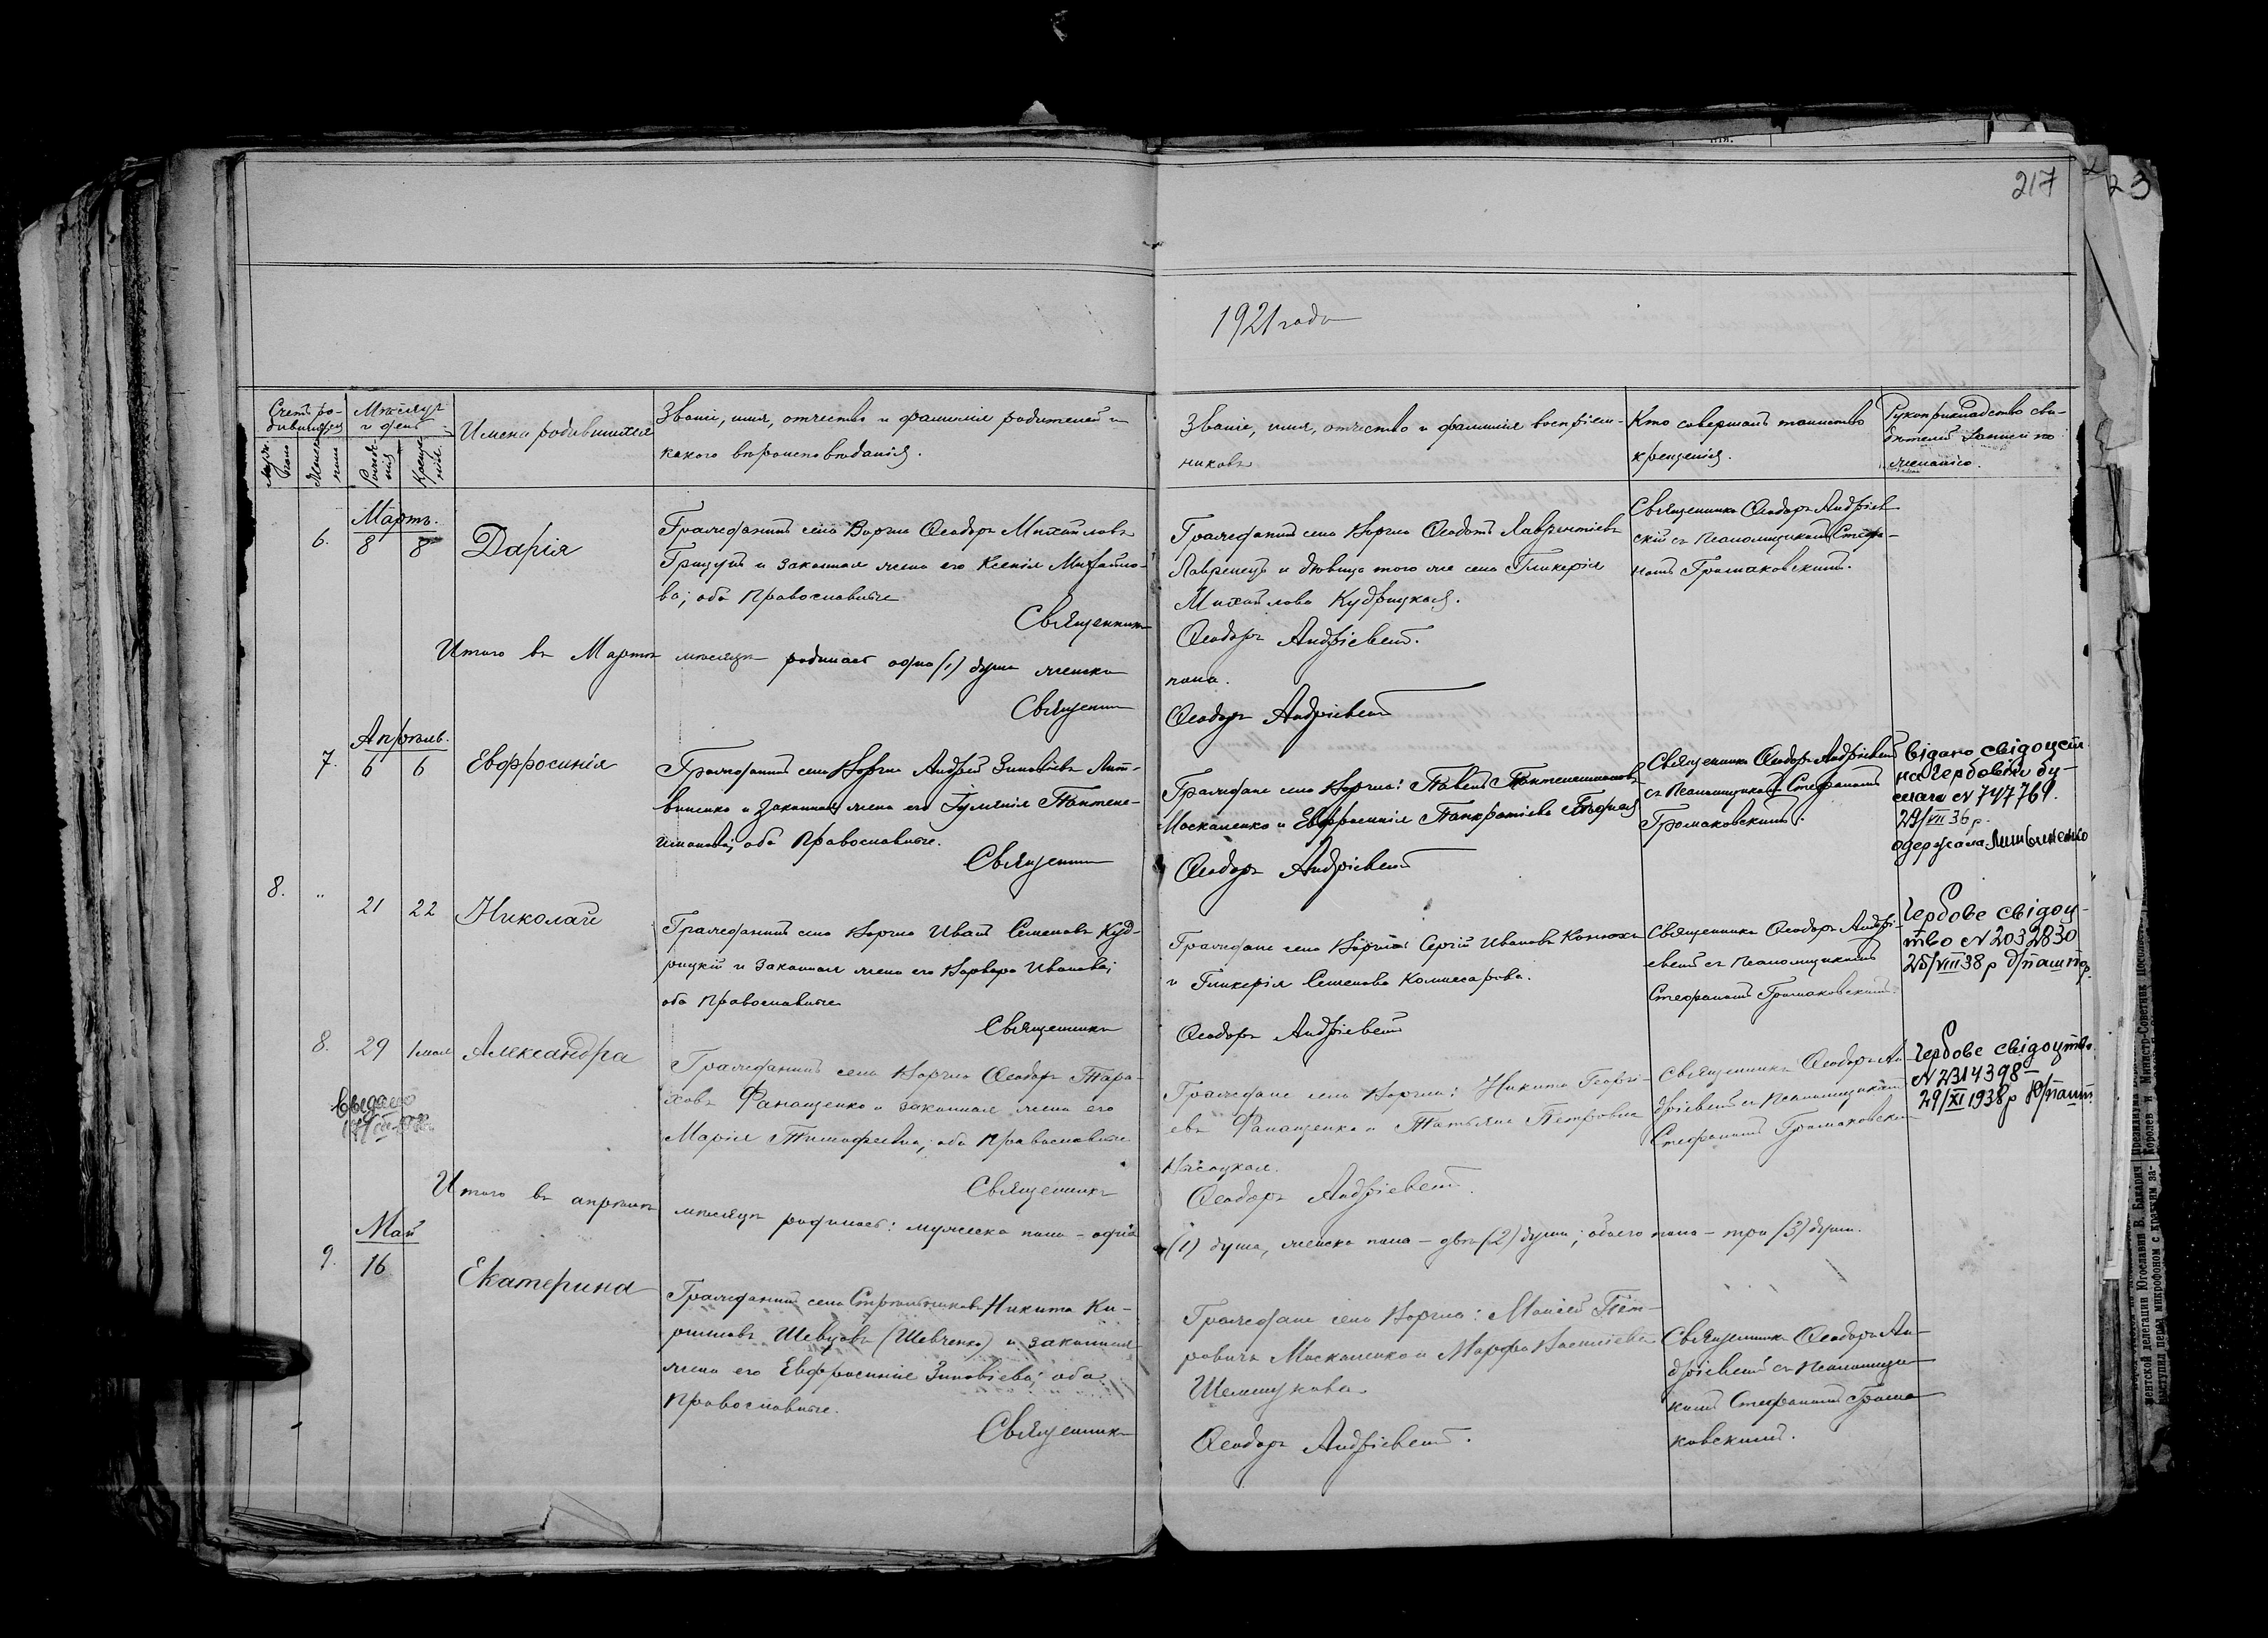 217
23
1921 года
Счетъ ро-
дившихся
Мѣсяцъ
и день
Имена родившихся
Званіе, имя, отчество и фамилія родителей и
какого вѣроисповѣданія.
Званіе, имя, отчество и фамилія воспріем-
никовъ
Кто совершалъ таинство
крещенія.
Рукоприкладство сви-
дѣтелей записи по
желанію.
Мартъ.
6.
8
8
Дарія
Гражданинъ села Воргла Ѳеодоръ Михайловъ
Грицунъ и законная жена его Ксенія Михайло-
ва; оба Православные
Священникъ
Гражданинъ села Воргла Ѳеодотъ Лаврентіевъ
Лавренецъ и дѣвица того же села Гликерія
Михайлова Кудрицкая.
Ѳеодоръ Андріевскій.
Священникъ Ѳеодоръ Андріев-
скій съ Псаломщикомъ Стефа-
номъ Громаковскимъ.
Итого въ Мартѣ мѣсяцѣ родилась одна (1) душа женска
пола.
Священникъ
Ѳеодоръ Андріевскій
Апрѣль.
7.
6
6
Евфросинія
Гражданинъ села Воргла Андрей Зиновіевъ Лит-
виненко и законная жена его Іуліанія Пантеле-
имонова; оба Православные.
Священникъ
Граждане села Воргла: Павелъ Пантелеимоновъ
Москаленко и Евфросинія Панкратіева
Ѳеодоръ Андріевскій
Священникъ Ѳеодоръ Андріевскій
съ Псаломщикомъ Стефаномъ
Громаковскимъ.
Видано свідоцтв
на гербовім бу-
мага № 747769.
29/VII 36 р.
одержала Литвиненко
8.
"
21
22
Николай
Гражданинъ села Воргла Иванъ Семеновъ Куд-
рицкій и законная жена его Варвара Иванова;
оба Православные
Священникъ
Граждане села Воргла: Сергій Ивановъ Конюхъ
и Гликерія Семенова Комисарова.
Ѳеодоръ Андріевскій
Священникъ Ѳеодоръ Андрі-
евскій съ Псаломщикомъ
Стефаномъ Громаковскимъ.
Гербове свідоц-
тво № 2032830
25/VIII 38 р д/пашпор.
8.
29
1 мая
Александра
Выдано
Гражданинъ села Воргла Ѳеодоръ Тара-
ховъ Фанащенко и законная жена его
Марія Тимофеевна; оба Православные
Священникъ
Граждане села Воргла: Никита Георгі-
евъ Фанащенко и Татьяна Петровна
Ѳеодоръ Андріевскій
Священникъ Ѳеодоръ Ан-
дріевскій съ Псаломщикомъ
Стефаномъ Громаковским
Гербове свідоцтво
№ 2314398
29/XI 1938 р д/пашп.
Итого въ апрѣлѣ мѣсяцѣ родилась: мужеска пола – одна
(1) душа, женска пола – двѣ (2) души; обоего пола – три (3) души.
Май
9.
16
Екатерина
Гражданинъ села Стрѣльниковъ Никита Ки-
рилловъ Шевцовъ (Шевченко) и законная
жена его Евфросинія Зиновіева; оба
Православные.
Священникъ
Граждане села Воргла: Моисей Пет-
ровичъ Москаленко и Марфа Василіева
Шемшукова
Ѳеодоръ Андріевскій.
Священникъ Ѳеодоръ Ан-
дріевскій съ Псаломщи-
комъ Стефаномъ Грома-
ковскимъ.